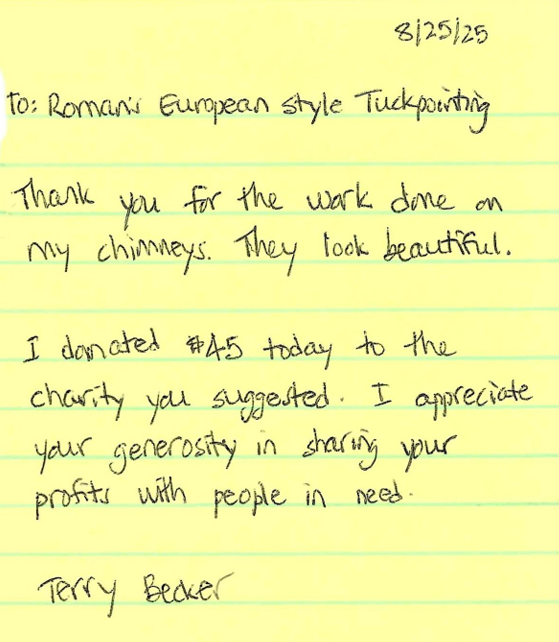 8/25/25
To: Roman's European style Tuckpointing
Thank you for the work done on
my chimneys. They look beautiful.
I donated $45 today to the
charity you suggested. I appreciate
your generosity in sharing your
profits with people in need.
Terry Becker